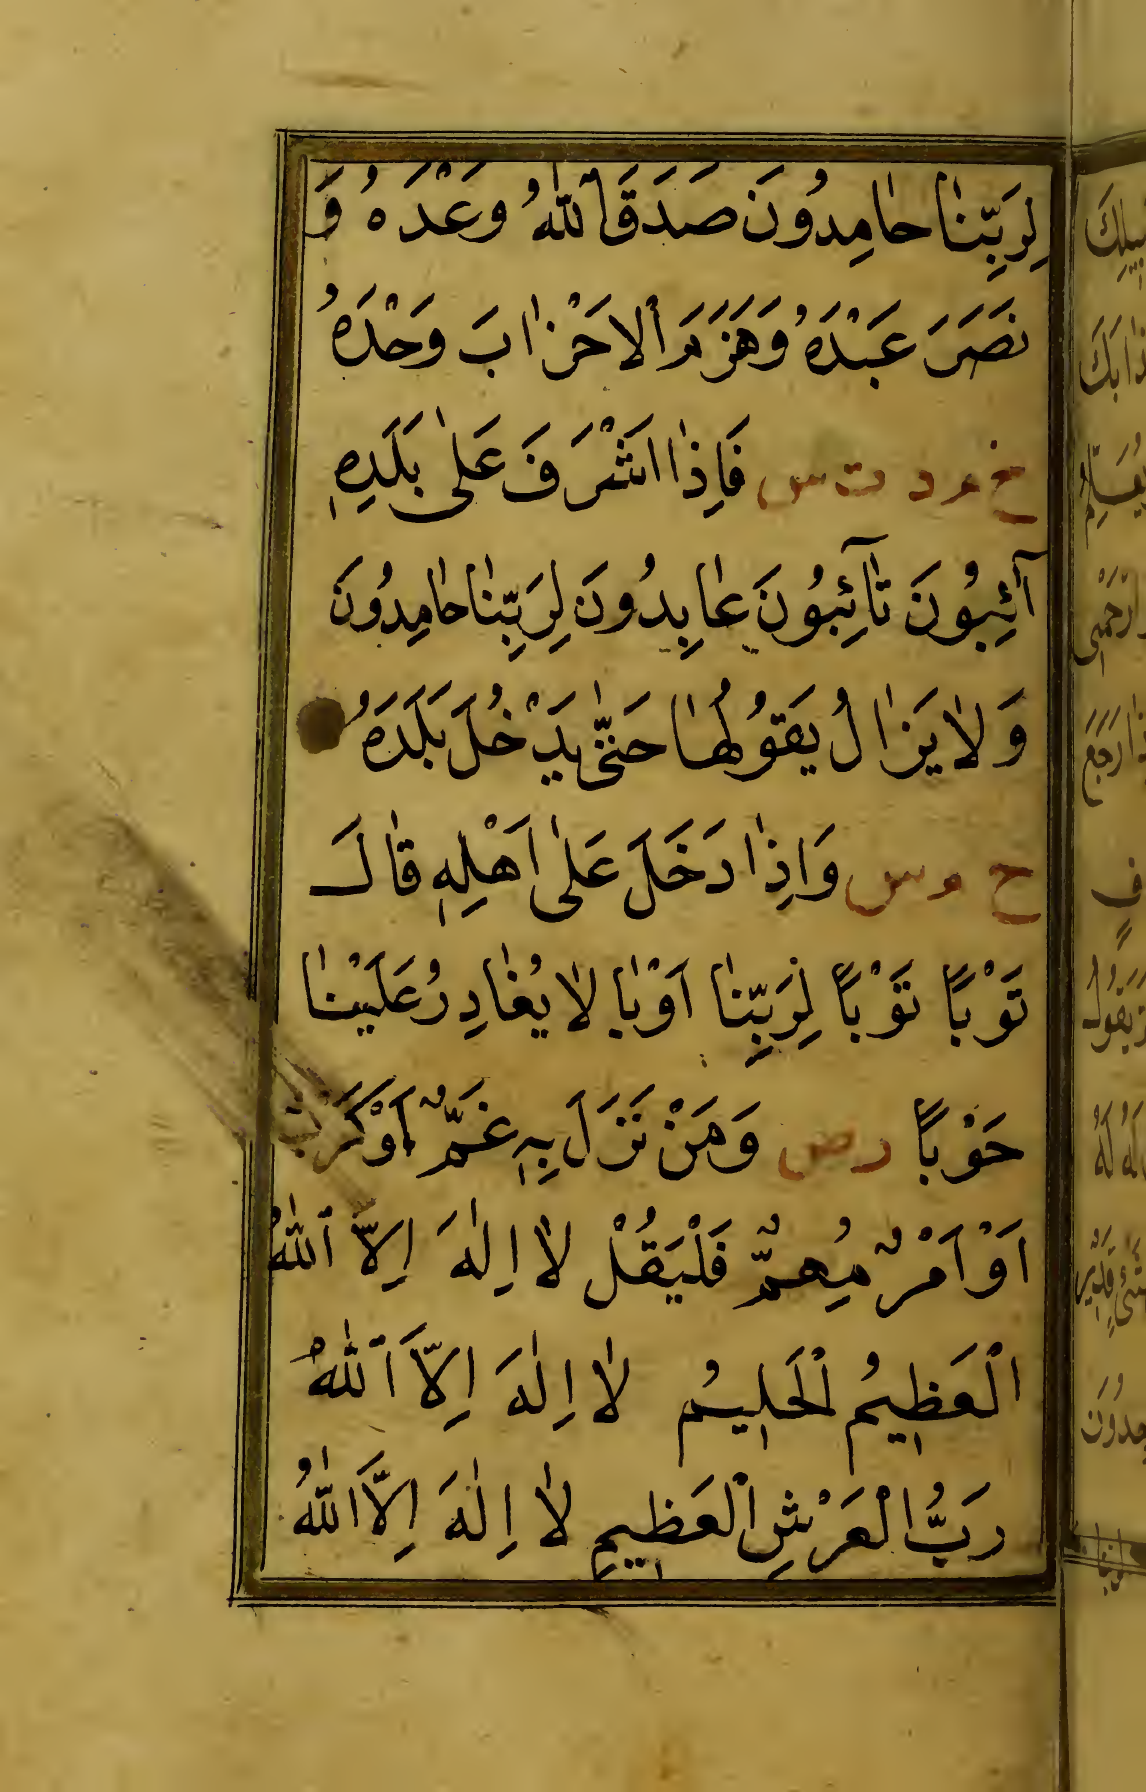 لِرَبِّنَا حَامِدُونَ صَدَقَ اللّٰهُ وَعْدَهُ وَ
نَصَرَ عَبْدَهُ وَهَزَمَ الْاَحْزَابَ وَحْدَهُ
خ م د ت س فَاِذَا اَشْرَفَ عَلٰى بَلَدِهِ
آئِبُونَ تَآئِبُونَ عَابِدُونَ لِرَبِّنَا حَامِدُونَ
وَلَا يَزَالُ يَقُولُهَا حَتّٰى يَدْخُلَ بَلَدَهُ
خ م س وَاِذَا دَخَلَ عَلٰى اَهْلِهِ قَالَ
تَوْبًا تَوْبًا لِرَبِّنَا اَوْبًا لَا يُغَادِرُ عَلَيْنَا
حَوْبًا ر ص وَمَنْ نَزَلَ بِهِ غَمٌّ اَوْ كَرْبٌ
اَوْ اَمْرٌ مُهِمٌّ فَلْيَقُلْ لَا اِلٰهَ اِلَّا اللّٰهُ
الْعَظِيمُ الْحَلِيمُ لَا اِلٰهَ اِلَّا اللّٰهُ
رَبُّ الْعَرْشِ الْعَظِيمِ لَا اِلٰهَ اِلَّا اللّٰهُ